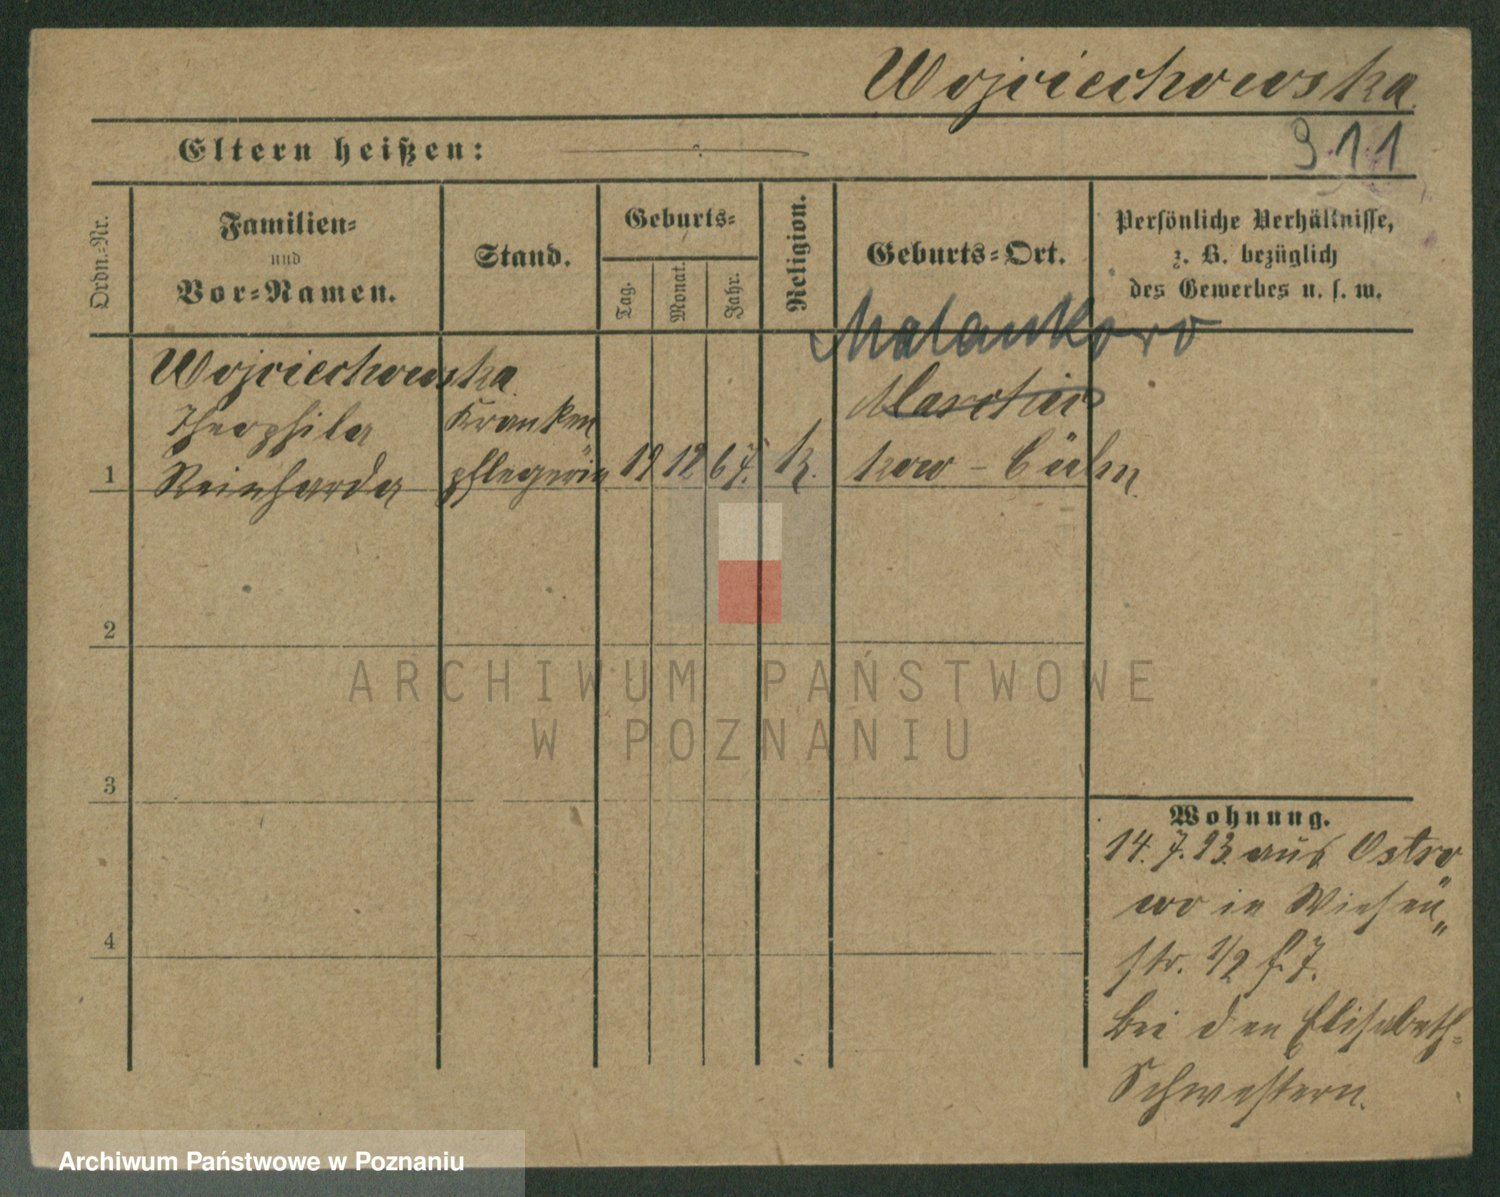 Wojciechowska
Eltern heißen:
911
Ordn.-Nr.
Familien-
und
Vor-Namen.
Stand.
Geburts-
Tag.
Monat.
Jahr.
Religion.
Geburts-Ort.
Persönliche Verhältnisse,
z. B. bezüglich
des Gewerbes u. s. w.
Malankowo
Wojciechowska
Theophila
Kranken
1
Reinharda
pflegerin
19 12 67.
k.
kow - Culm
2
ARCHIWUM PAŃSTWOWE
W POZNANIU
3
Wohnung.
14. 7. 93. aus Ostro
wo in Wiesen
str. 1/2 f. 7.
bei den Elisabeth-
Schwestern.
4
Archiwum Państwowe w Poznaniu